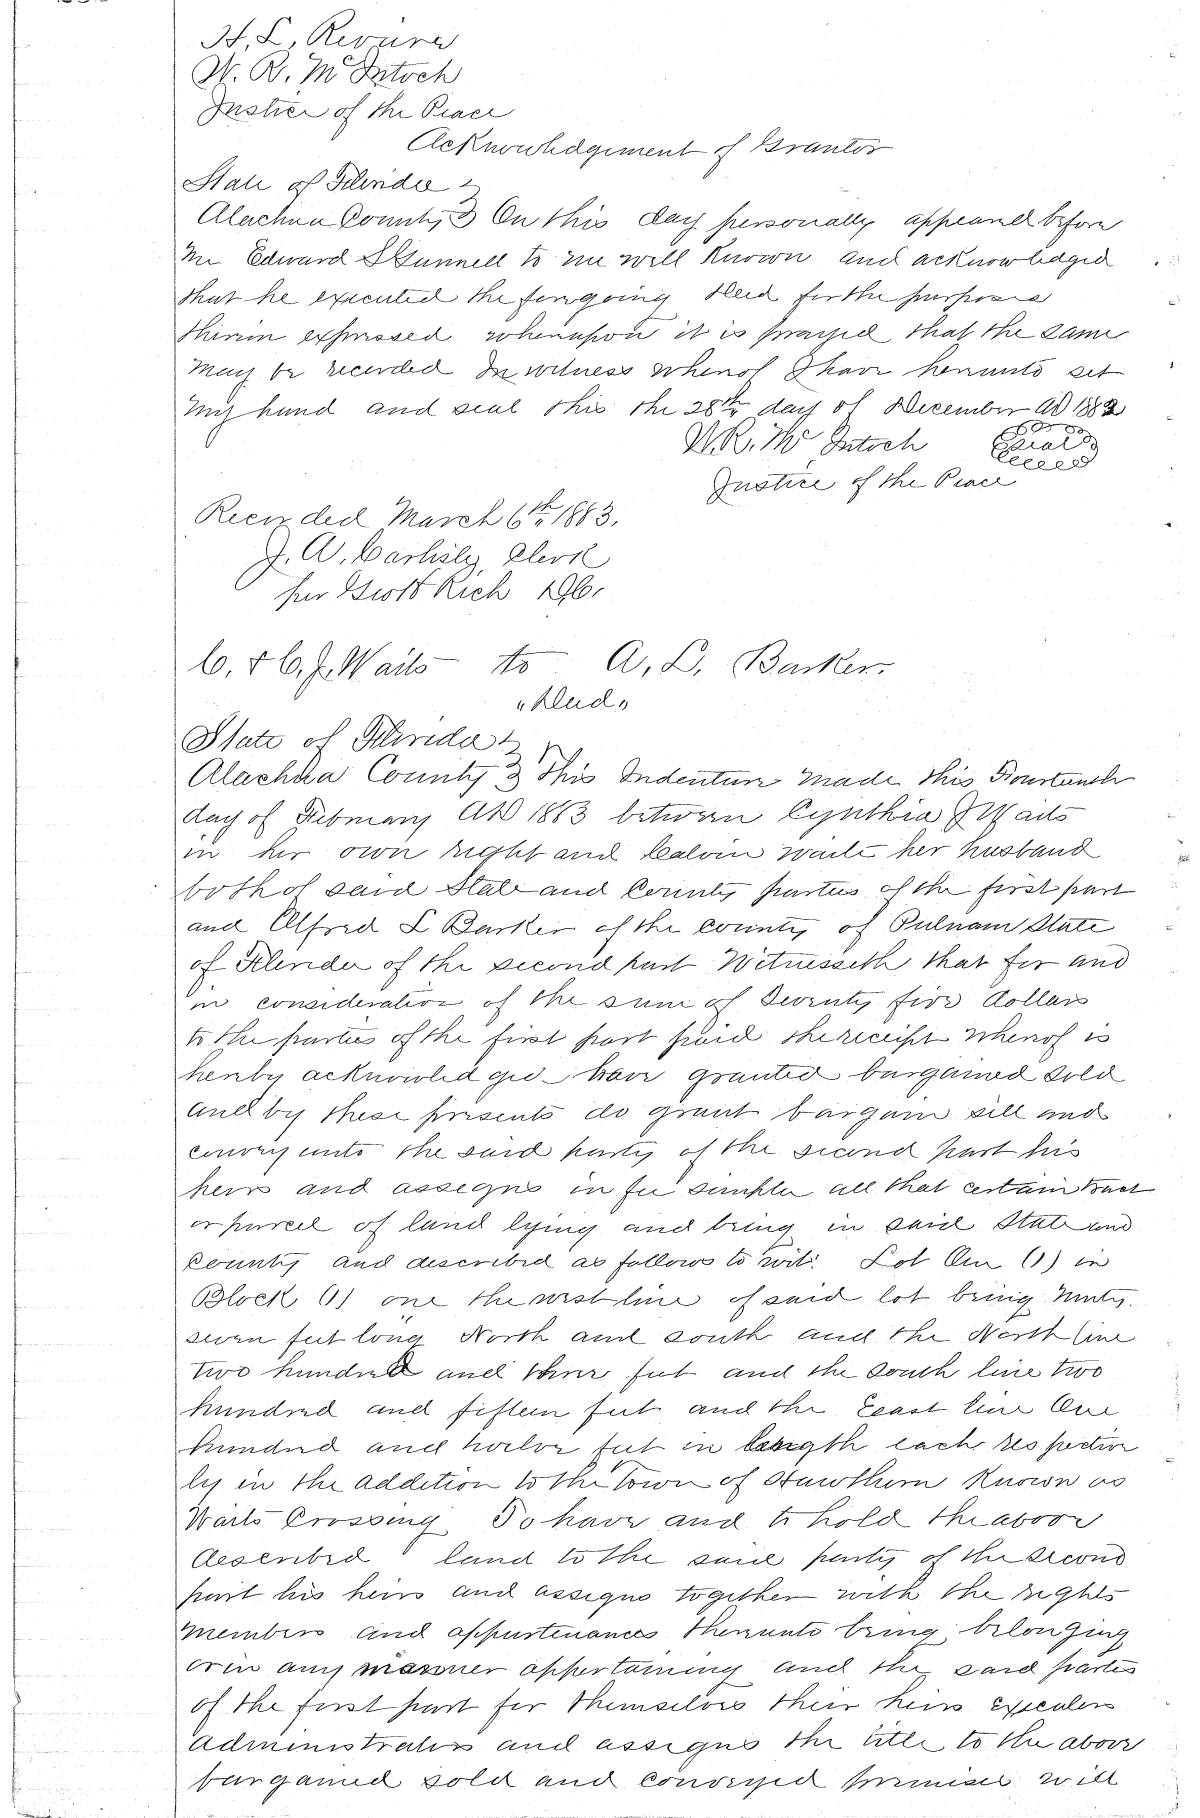 H. L.
W. R. McIntoch
Justice of the Peace
Acknowledgement of Grantor
State of Florida
Alachua County } On this day personally appeared before
me Edward S Gunnell to me well Known and acknowledged
that he executed the foregoing deed for the purposes
therein expressed whereupon it is prayed that the same
may be recorded In witness whereof I have hereunto set
my hand and seal this the 28th day of December AD 1882
W. R. McIntoch Seal
Justice of the Peace
Recorded March 6th 1883.
J. A. Carlisle, Clerk
per Rich
C. & C. J. Waits to A. L. Barker.
"Deed"
State of Florida
Alachua County } This Indenture made this Fourteenth
day of February AD 1883 between Cynthia J Waits
in her own right and Calvin Waits her husband
both of said State and County parties of the first part
and Alfred L Barker of the county of Putnam State
of Florida of the second part Witnesseth that for and
in consideration of the sum of Seventy five dollars
to the parties of the first part paid the receipt whereof is
hereby acknowledged have granted bargained sold
and by these presents do grant bargain sell and
convey unto the said party of the second part his
heirs and assigns in fee simple all that certain tract
or parcel of land lying and being in said State and
County and described as follows to wit: Lot One (1) in
Block (1) one the west line of said lot being ninety
seven feet long North and south and the North line
two hundred and three feet and the South line two
hundred and fifteen feet and the East line One
hundred and twelve feet in length each respective
ly in the addition to the town of Hawthorn Known as
Waits Crossing To have and to hold the above
described land to the said party of the second
part his heirs and assigns together with the rights
members and appurtenances thereunto being belonging
or in any manner appertaining and the said parties
of the first part for themselves their heirs executors
administrators and assigns the title to the above
bargained sold and conveyed premises will